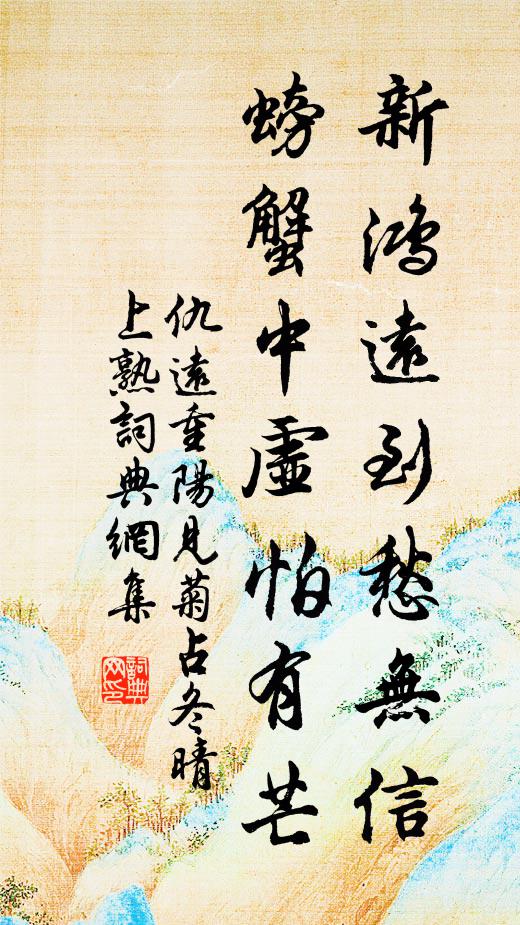 新鴻遠到愁無信
螃蟹中虛怕有芒
仇遠重陽見菊占冬晴
上熟詞典網集
詞典
网印